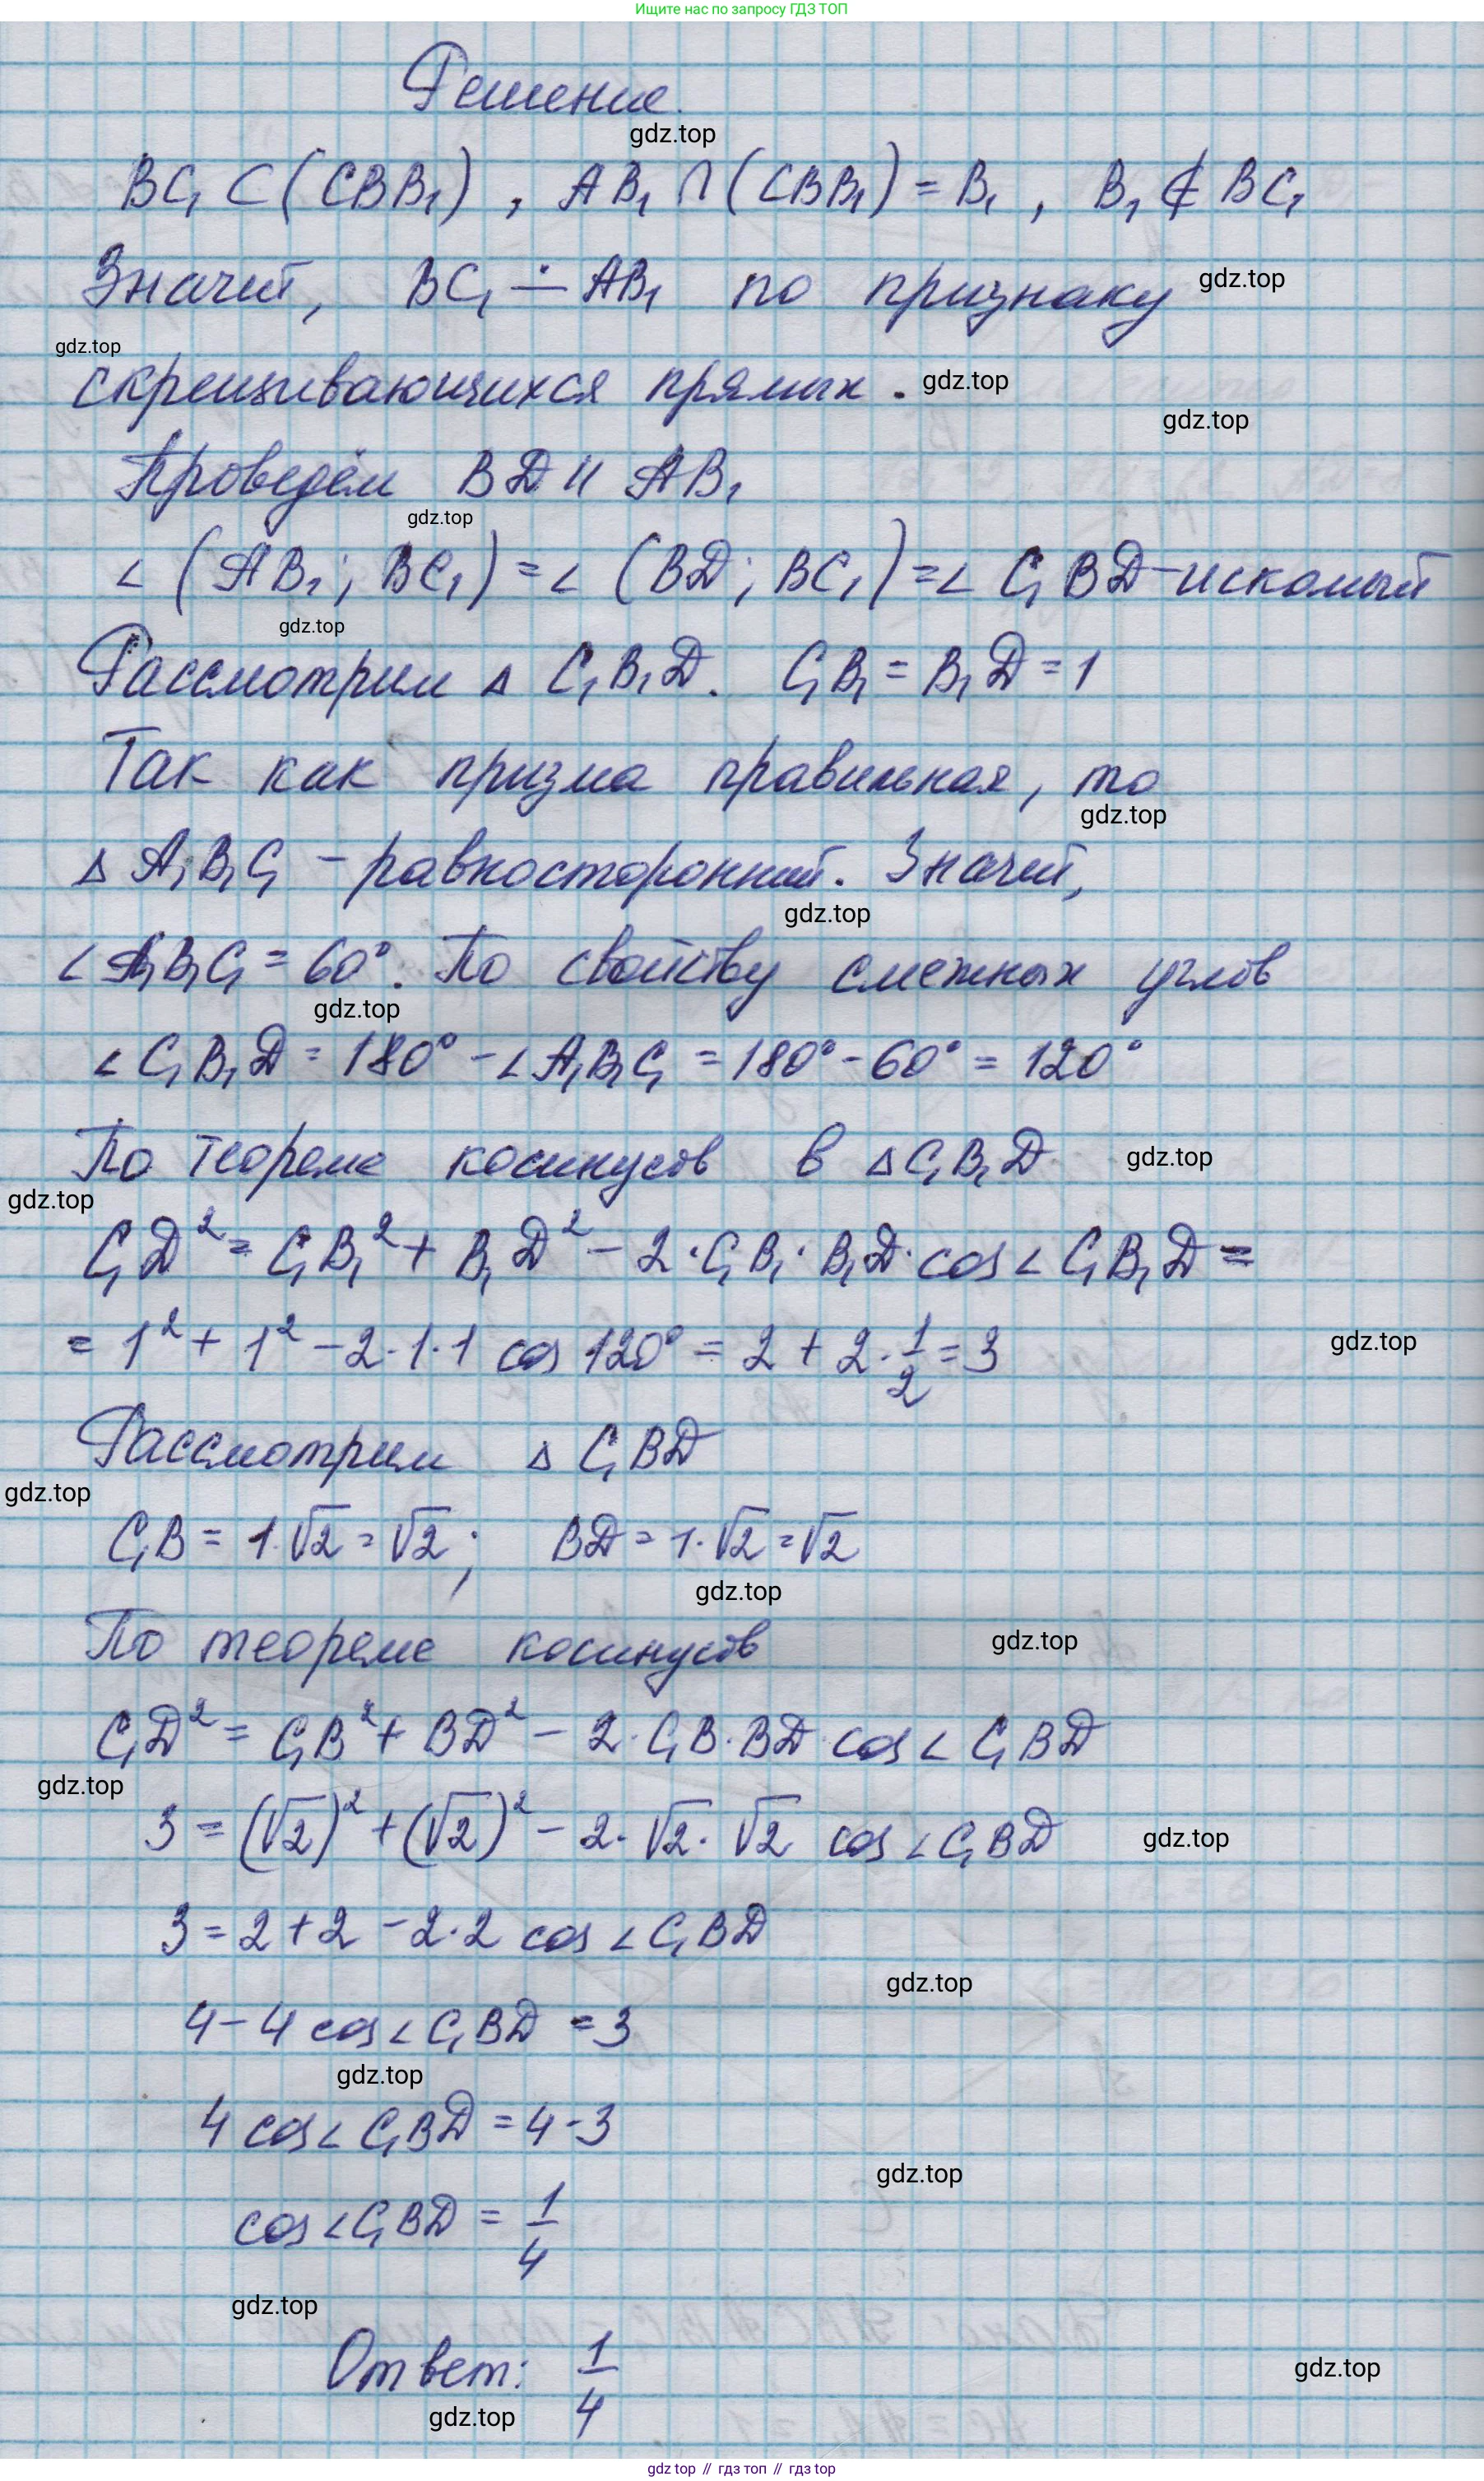 Ищите нас по запросу ГДЗ ТОП
Решение.
gdz.top
BC₁ ⊂ (CBB₁) , AB₁ ∩ (CBB₁) = B₁ , B₁ ∉ BC₁
Значит, BC₁ ∸ AB₁ по признаку gdz.top
gdz.top
скрещивающихся прямых . gdz.top
gdz.top
Проведём BD || AB₁
gdz.top
∠ (AB₁ ; BC₁) = ∠ (BD ; BC₁) = ∠ C₁BD - искомый
gdz.top
Рассмотрим Δ C₁B₁D. C₁B₁ = B₁D = 1
Так как призма правильная, то
gdz.top
Δ A₁B₁C₁ - равносторонний. Значит,
gdz.top
∠ A₁B₁C₁ = 60°. По свойству смежных углов
gdz.top
∠ C₁B₁D = 180° - ∠ A₁B₁C₁ = 180° - 60° = 120°
По теореме косинусов в Δ C₁B₁D gdz.top
gdz.top
C₁D² = C₁B₁² + B₁D² - 2 · C₁B₁ · B₁D · cos ∠ C₁B₁D =
= 1² + 1² - 2 · 1 · 1 cos 120° = 2 + 2 · 1/2 = 3 gdz.top
Рассмотрим Δ C₁BD
gdz.top
C₁B = 1 · √2 = √2 ; BD = 1 · √2 = √2
gdz.top
По теореме косинусов gdz.top
C₁D² = C₁B² + BD² - 2 · C₁B · BD · cos ∠ C₁BD
gdz.top
3 = (√2)² + (√2)² - 2 · √2 · √2 cos ∠ C₁BD gdz.top
3 = 2 + 2 - 2 · 2 cos ∠ C₁BD
gdz.top
4 - 4 cos ∠ C₁BD = 3
gdz.top
4 cos ∠ C₁BD = 4 - 3
gdz.top
cos ∠ C₁BD = 1/4
gdz.top
Ответ: 1/4 gdz.top
gdz.top
gdz top // гдз топ // гдз top